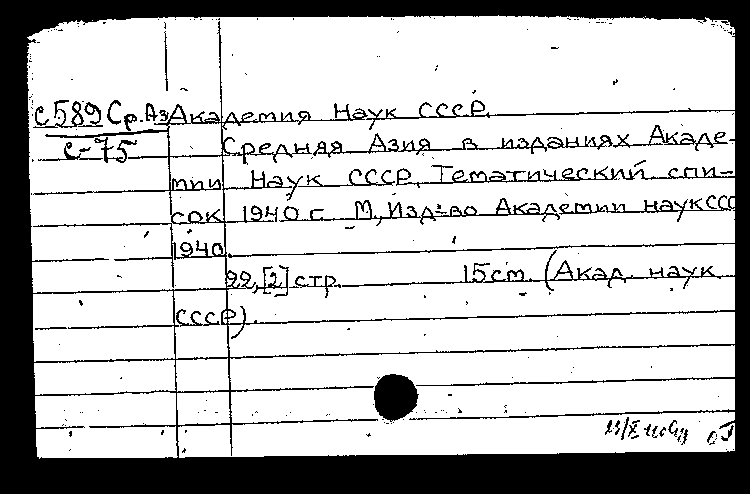 С589 Ср.Аз Академия Наук СССР.
С-75 Средняя Азия в изданиях Акаде-
мии Наук СССР. Тематический спи-
сок 1940 г. М, Изд-во Академии наук ССС
1940.
22, [2] стр. 15 см. (Акад. наук
СССР).